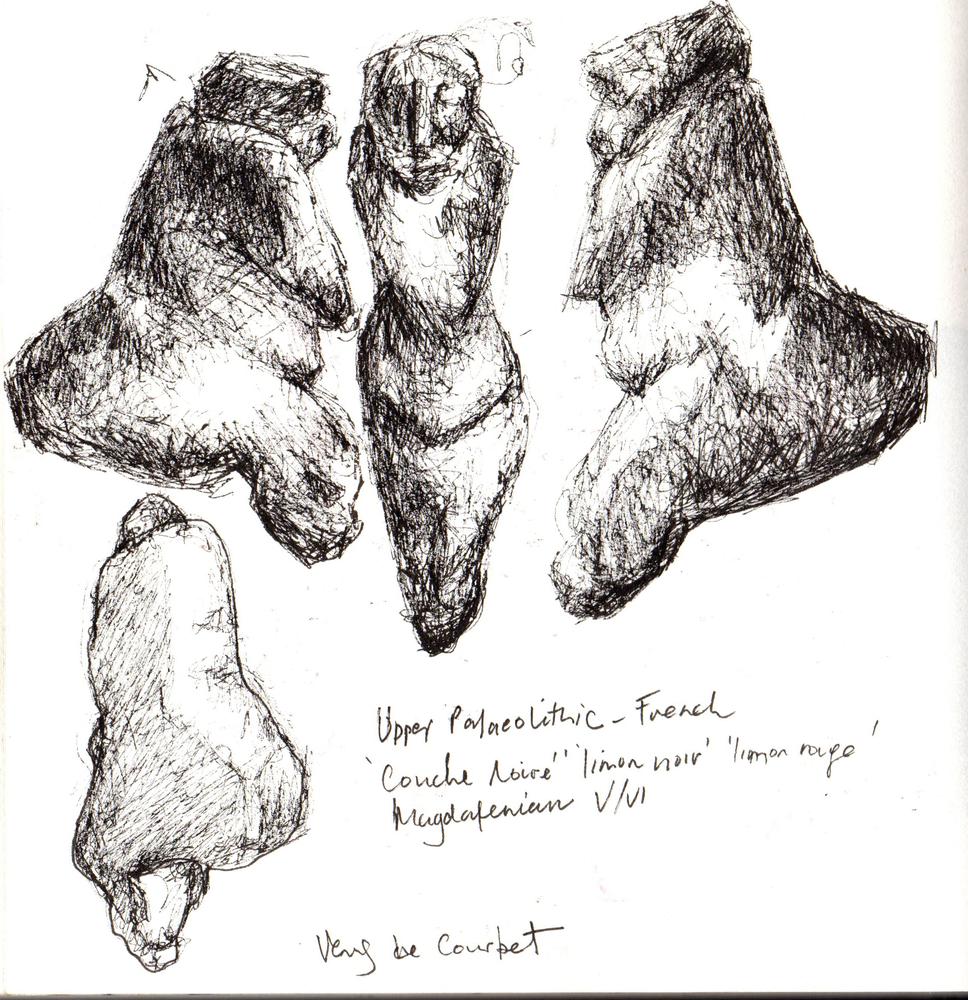 Upper Palaeolithic - French
'Couche Noire' 'limon noir' 'limon rouge'
Magdalenian V/VI
Venus de Courbet